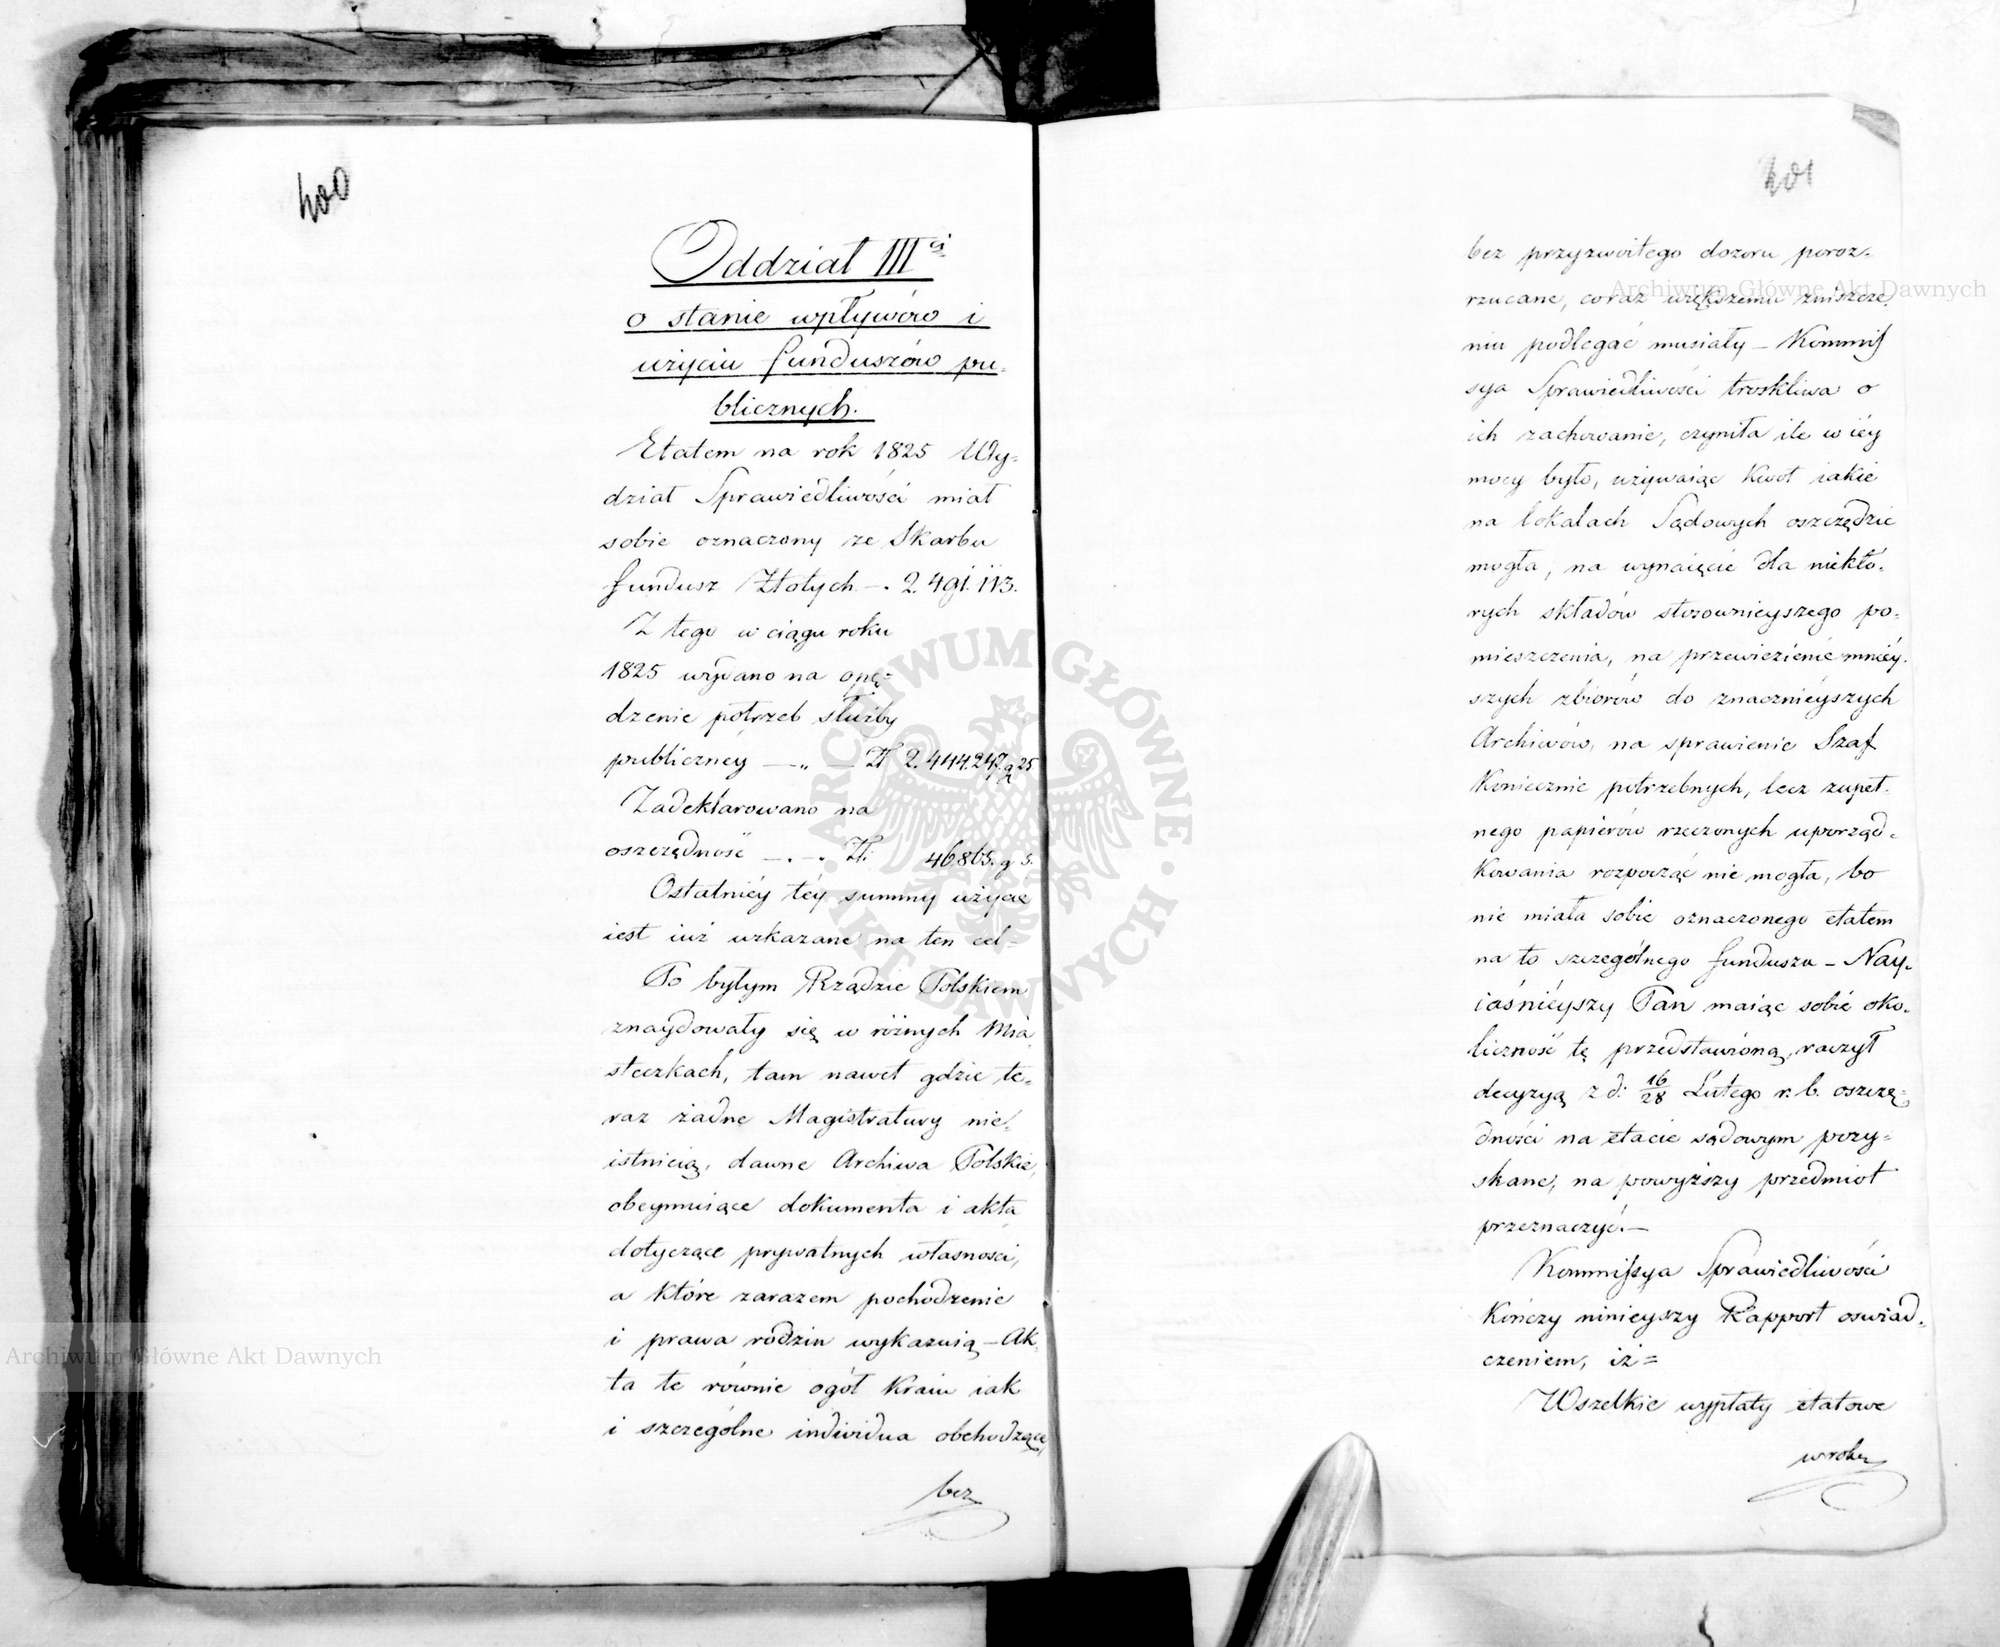 400
Oddział III ci
o stanie wpływów i
użyciu funduszów pu-
blicznych.
Etatem na rok 1825 Wy-
dział Sprawiedliwości miał
sobie oznaczony ze Skarbu
fundusz Złotych —. 2.491.113.
Z tego w ciągu roku
1825 wydano na opę-
dzenie potrzeb służby
publiczney —„— Zł 2.444.247. g 25
Zadeklarowano na
oszczędność —.—. Zł: 46865. g 5.
Ostatniéy téy summy użycie
iest iuż wskazane na ten cel —
Po byłym Rządzie Polskiem
znaydowały się w różnych Mia-
steczkach, tam nawet gdzie te-
raz żadne Magistratury nie-
istnieią, dawne Archiwa Polskie,
obeymuiące dokumenta i akta
dotyczące prywatnych własności,
a które zarazem pochodzenie
i prawa rodzin wykazuią — Ak-
ta te równie ogół Kraiu iak
i szczególne individua obchodzące,
bez
401
bez przyzwoitego dozoru poroz-
rzucane, coraz większemu zniszcze-
niu podlegać musiały — Kommis
sya Sprawiedliwości troskliwa o
ich zachowanie, czyniła ile w iéy
mocy było, używaiąc Kwot iakie
na lokalach Sądowych oszczędzić
mogła, na wynaięcie dla niektó-
rych składów stosownieyszego po-
mieszczenia, na przewiezienie mniéy-
szych zbiorów do znacznieyszych
Archiwów, na sprawienie Szaf
Koniecznie potrzebnych, lecz zupeł-
nego papierów rzeczonych uporząd-
kowania rozpocząć nie mogła, bo
nie miała sobie oznaczonego etatem
na to szczególnego funduszu — Nay-
iaśnieyszy Pan maiąc sobie oko-
liczność tę przedstawioną, raczył
decyzyą z d: 16/28 Lutego r. b. oszczę-
dności na etacie sądowym pozy-
skane, na powyższy przedmiot
przeznaczyć. —
Kommissya Sprawiedliwości
Kończy ninieyszy Rapport oswiad-
czeniem, iż =
Wszelkie wypłaty etatowe
w roku
Archiwum Główne Akt Dawnych
Archiwum Główne Akt Dawnych
ARCHIWUM GŁÓWNE AKT DAWNYCH